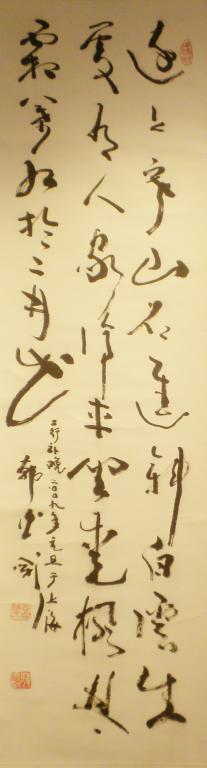 遠上寒山石逕斜白雲生
處有人家停車坐愛楓林
霜葉紅於二月花
二行补晚 二〇〇九年元旦于上海